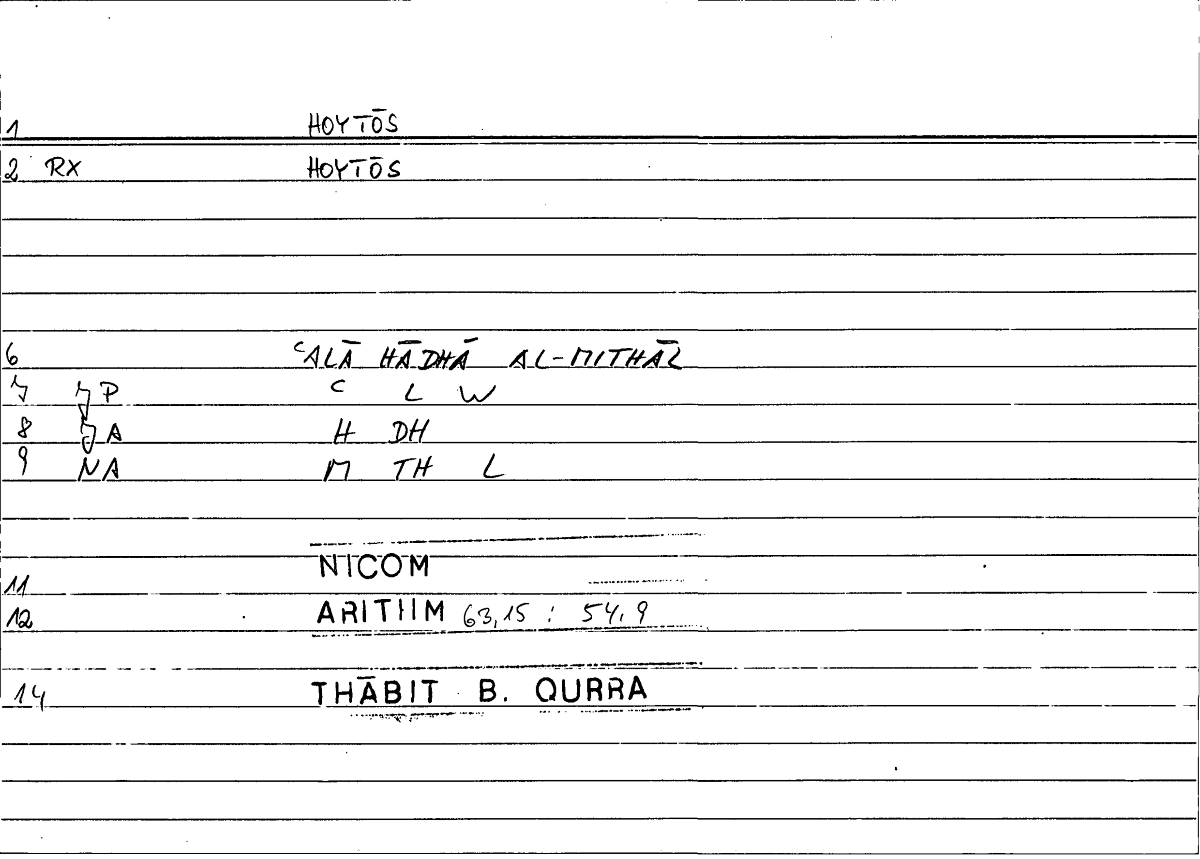 1 HOYTŌS
2 RX HOYTŌS
6 ᶜALĀ HĀDHĀ AL-MITHĀL
7 P C L W
8 A H DH
9 NA M TH L
11 NICOM
12 ARITHM 63,15 : 54,9
14 THĀBIT B. QURRA